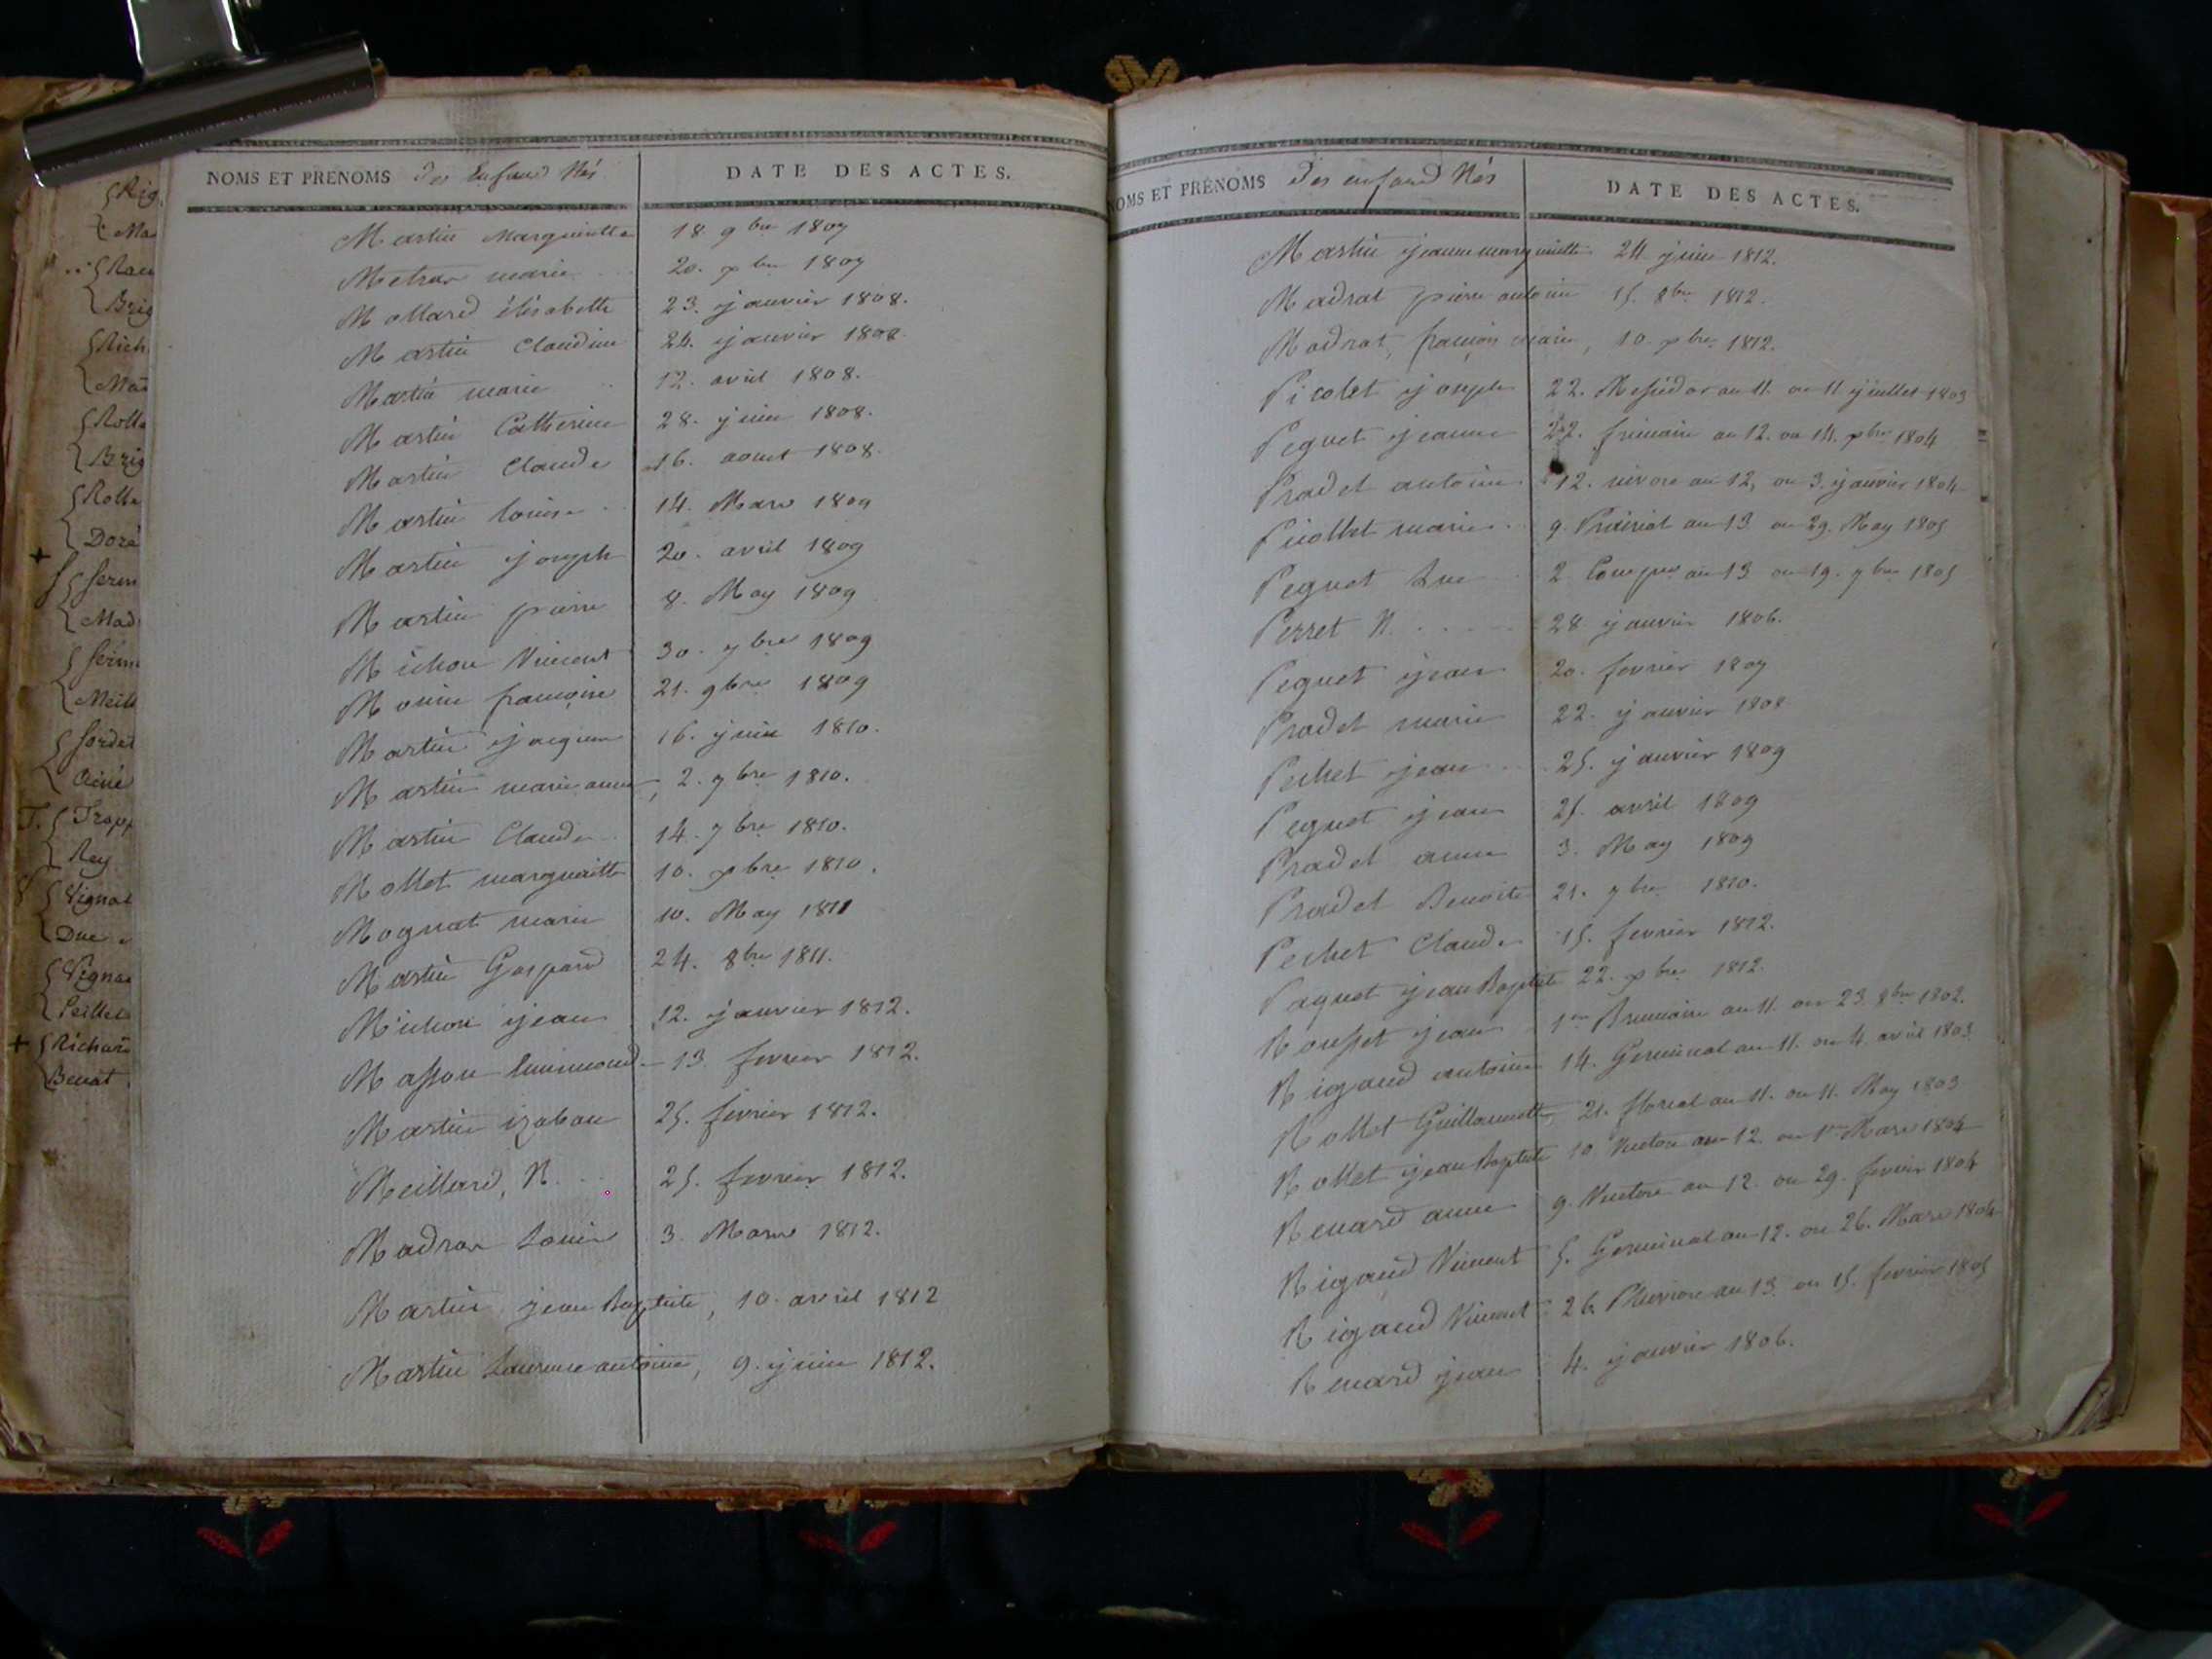 Rig
Ma
Rau
Brig
Rich
Mar
Rolle
Brig
Rolle
Doré
Serm
Mad
Serm
Meill
Sordet
Aimé
T. Trop
Rey
V Vignat
Duc
Vigna
Peillet
Richard
Benat
NOMS ET PRENOMS Des Enfans Nés DATE DES ACTES.
Martin Margueritte 18. 9bre 1807
Metrar marie 20. xbre 1807
Mollard élisabette 23. janvier 1808.
Martin Claudine 24. janvier 1808.
Martin marie 12. avril 1808.
Martin Catherine 28. juin 1808.
Martin Claude 16. aoust 1808.
Martin louise 14. Mars 1809
Martin joseph 20. avril 1809
Martin pierre 8. May 1809
Michon Vincent 30. 7bre 1809
Monin françoise 21. 9bre 1809
Martin jacques 16. juin 1810.
Martin marie anne, 2. 7bre 1810.
Martin Claude 14. 7bre 1810.
Mollet margueritte 10. xbre 1810.
Mognat marie 10. May 1811
Martin Gaspard 24. 8bre 1811.
Michon jean 12. janvier 1812.
Masson 13. fevrier 1812.
Martin izabau 25. fevrier 1812.
Meillard, N. 25. fevrier 1812.
Madrar Louis 3. Mars 1812.
Martin jean Baptiste, 10. avril 1812
Martin Laurence antoine, 9. juin 1812.
NOMS ET PRENOMS des enfans Nés DATE DES ACTES.
Martin jeanne margueritte 24 juin 1812.
Madrat pierre antoine 15. 8bre 1812.
Madrat, françois marie, 10. xbre 1812.
Picolet joseph 22. Messidor an 11. ou 11 juillet 1803
Peguet jeanne 22. frimaire an 12. ou 14. xbre 1804
Pradel antoine 12. nivose an 12, ou 3. janvier 1804
Picollet marie 9. Prairial an 13 ou 29. May 1805
Peguet Luc 2 Comp. an 13 ou 19. 7bre 1805
Perret N. 28 janvier 1806.
Peguet jean 20. fevrier 1807
Pradel marie 22. janvier 1808
Pechet jean 25. janvier 1809
Peguet jean 25. avril 1809
Pradel anne 3. May 1809
Pradel Benoite 21. 7bre 1810.
Pechet Claude 15. fevrier 1812.
Paquet jean Baptiste 22. xbre 1812.
Rousset jean 1er Brumaire an 11. ou 23. 8bre 1802.
Rigaud antoine 14. Germinal an 11. ou 4. avril 1803
Rollet Guillaumette, 21. floreal an 11. ou 11. May 1803
Rollet jean Baptiste 10 Ventose an 12. ou 1er Mars 1804
Renard anne 9. Ventose an 12. ou 29. fevrier 1804
Rigaud Vincent 5. Germinal an 12. ou 26. Mars 1804
Rigaud Vincent 26 Pluviose an 13 ou 15. fevrier 1805
Renard jean 4. janvier 1806.